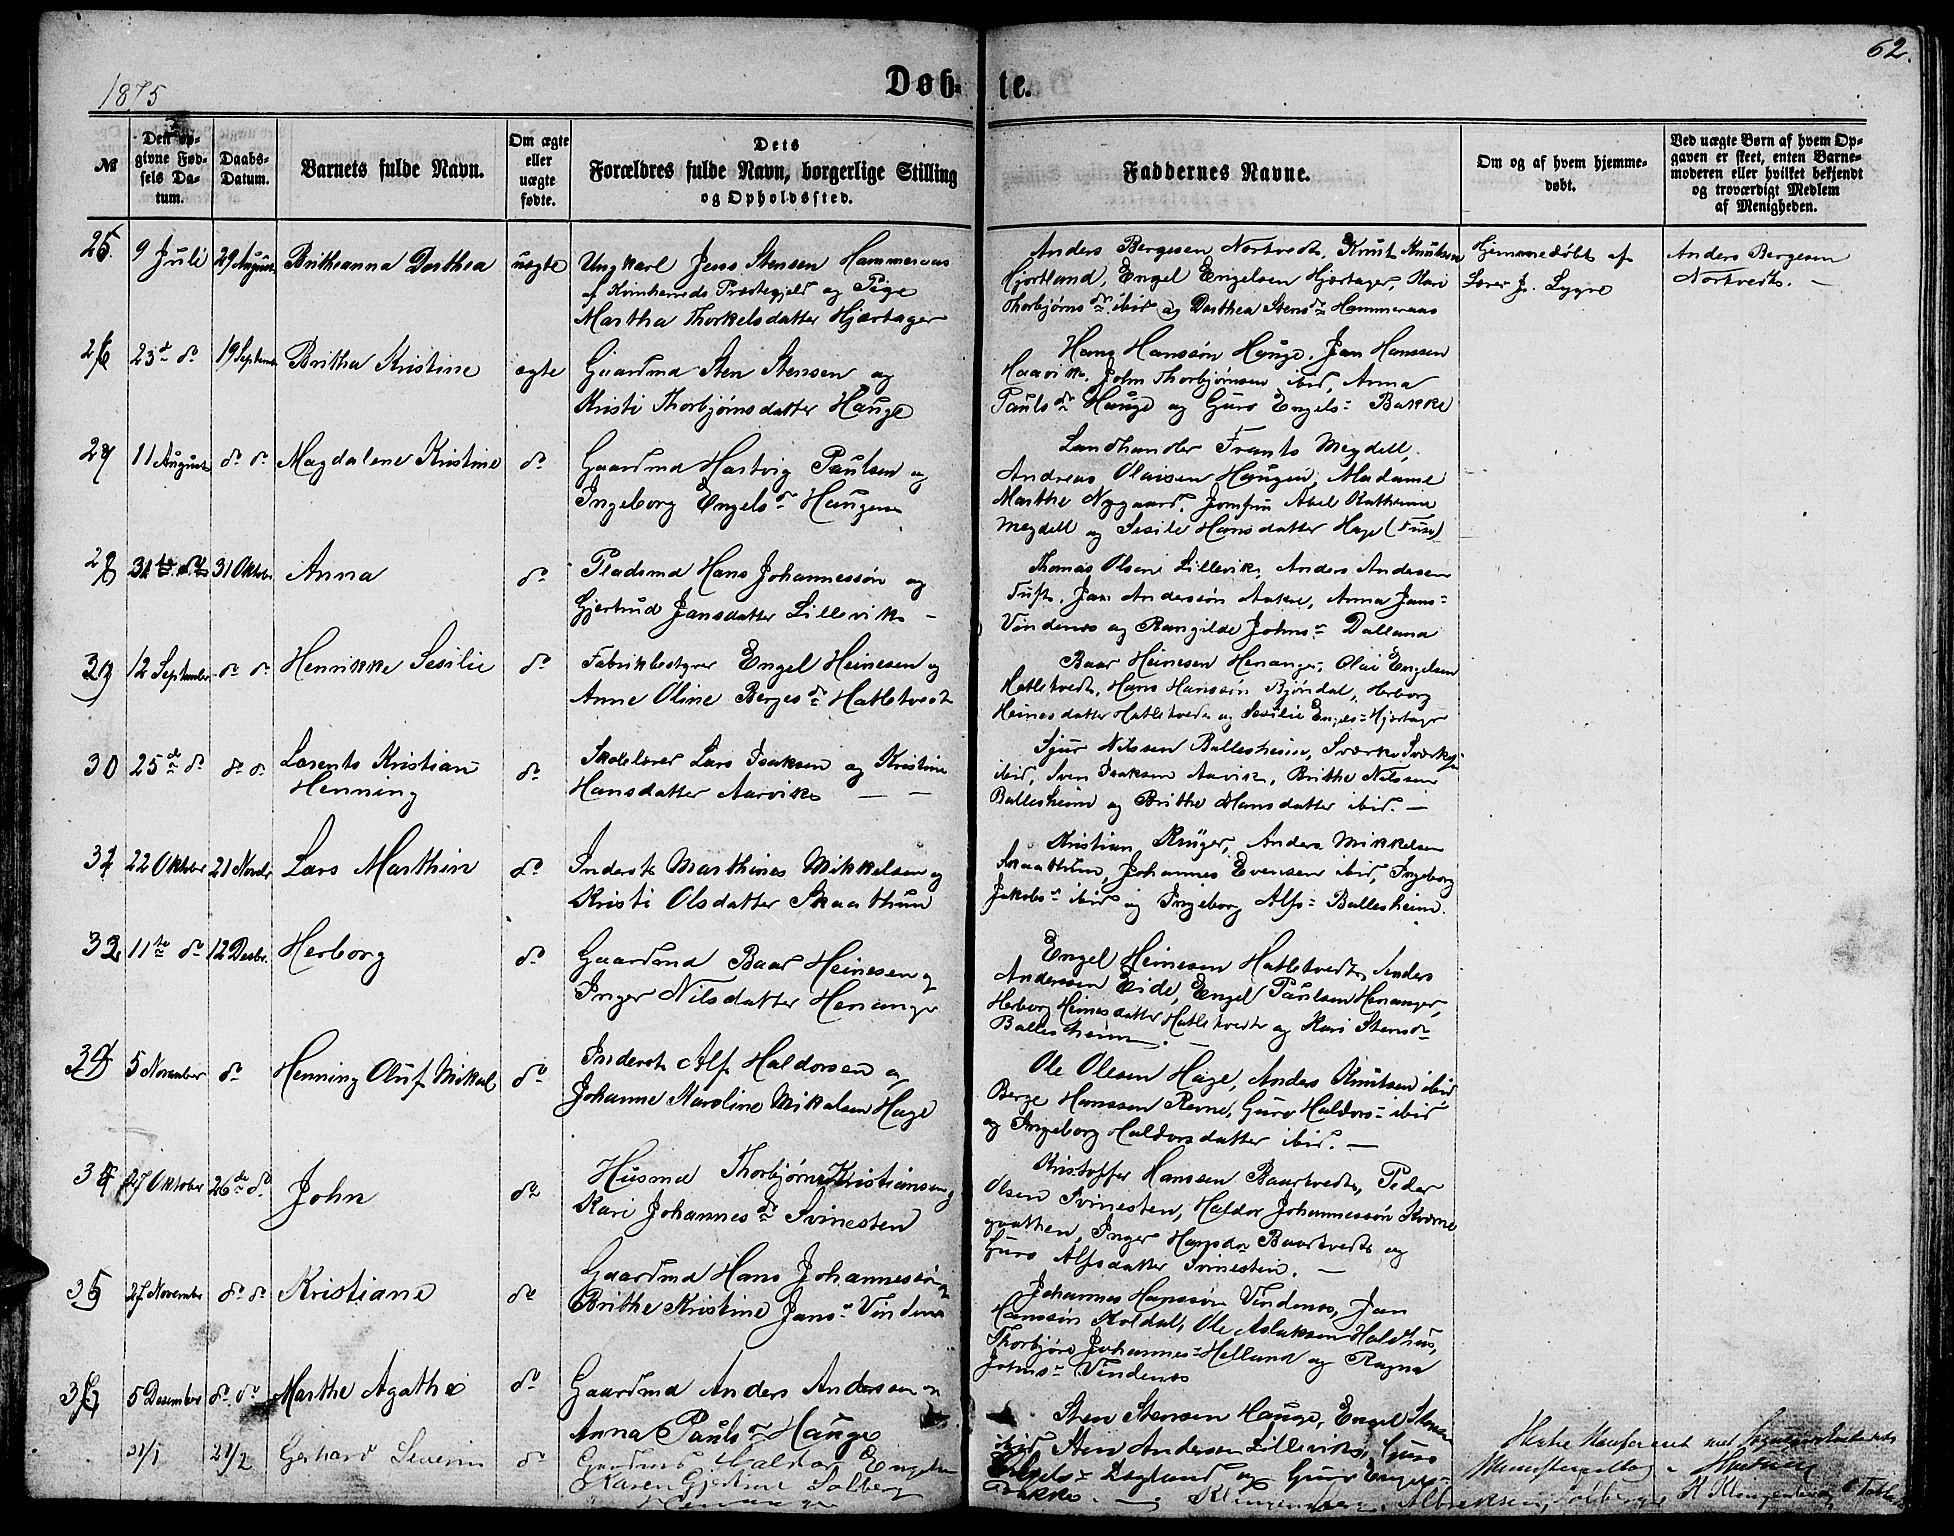 62.
1875
Døb-te.
№
Den op-
givne Fød-
sels Da-
tum.
Daabs-
Datum.
Barnets fulde Navn.
Om ægte
eller
uægte
fødte.
Dets
Forældres fulde Navn, borgerlige Stilling
og Opholdssted.
Faddernes Navne.
Om og af hvem hjemme-
døbt.
Ved uægte Børn af hvem Op-
gaven er skeet, enten Barne-
moderen eller hvilket bekjendt
og troværdigt Medlem
af Menigheden.
25. 9 Juli 29 August Brithanna Dorthea uægte Ungkarl Jens Stensen Hammeraas
af Kvinherreds Præstegjeld og Pige
Martha Thorkelsdatter Hjærtager
Anders Bergesen Nortvedt, Knut Knutsen
Hjortland, Engel Engelsen Hjærtager, Kari
Thorbjørns dr ibid og Dorthea Stens dr Hammeraas
Hjemmedøbt af
Lærer J. Lygre
Anders Bergesen
Nortvedt. —
26 23de do 19 Septembr Britha Kristine ægte Gaardmd Sten Stensen og
Kristi Thorbjørnsdatter Hauge
Hans Hanssøn Hauge, Jan Hanssen
Haavik, John Thorbjørnsen ibid, Anna
Pauls dr Hauge og Guro Engels= Bakke
27 11 August do do Magdalene Kristine do Gaardmd Hartvig Paulsen og
Ingeborg Engels dr Haugen
Landhandler Frants Meydell,
Andreas Olaisen Haugen, Madame
Marthe Nygaard, Jomfru Abel Kathrine
Meydell og Sesile Hansdatter Hage (Fuse)
28 31te do 31 Oktobr Anna do Pladsmd Hans Johannessøn og
Gjertrud Jansdatter Lillevik —
Thomas Olsen Lillevik, Anders Andersen
Tuft, Jan Anderssøn Aakre, Anna Jans=
Vindenes og Rangilde Johns= Dalland
29 12 September do do Henrikke Sesilie do Fabrikbestyrer Engel Heinesen og
Anne Oline Berges dr Hatletvedt
Baar Heinesen Henanger, Olai Engelsen
Hatletvedt, Hans Hanssøn Bjørndal, Herborg
Heinesdatter Hatletvedt og Sesilie Engels= Hjærtager
30 25de do do do Larents Kristian
Henning do Skolelærer Lars Isaksen og Kristine
Hansdatter Aarvik — —
Sjur Nilssen Ballesheim, Sværke Sværks=
ibid, Sven Isaksen Aarvik, Brithe Nilssen
Ballesheim og Brithe Hansdatter ibid. —
31 22 Oktober 21 Novbr Lars Marthin do Inderst Marthines Mikkelsen og
Kristi Olsdatter Skaathun
Kristian Krüger, Anders Mikkelsen
Skaathun, Johannes Evensen ibid, Ingeborg
Jakobs= ibid og Ingeborg Alfs= Ballesheim.
32 11te do 12 Desbr. Herborg do Gaardmd Baar Heinesen og
Inger Nilsdatter Henanger
Engel Heinesen Hatletvedt, Anders
Anderssen Eide, Engel Paulsen Henanger,
Herborg Heinesdatter Hatletvedt og Kari Stensdr
Ballesheim. —
5 November do Henning Oluf Mikal do Inderst Alf Haldorsen og
Johanne Karoline Mikalsen Hage
Ole Olesen Hage, Anders Knutsen ibid
Berge Hanssen Revne, Guro Haldors= ibid
og Ingeborg Haldorsdatter ibid. —
34 27 Oktober 26de do John do Husmd Thorbjørn Kristiansen og
Kari Johannes dr Svinesten
Kristoffer Hanssen Baartvedt, Peder
Olsen Svinesten, Haldor Johannessøn Kværne
grathen, Inger Hansdr Baartvedt og
Guro Alfsdatter Svinesten. —
35 27 November do do Kristiane do Gaardmd Hans Johannessøn og
Brithe Kristine Jans= Vindenes
Johannes Hanssøn Vindenes, Jan
Hanssøn Koldal, Ole Aslaksen Haldhus,
Thorbjørn Johannes= Helland og Ragna
Johns= Vindenes
36 5 Desember do do Marthe Agathe do Gaardmd Anders Andersen og
Anna Pauls dr Hauge
Sten Stensen Hauge, Engel Stensen
ibid, Sten Andersen Lillevik, Guro
Engels= Døgland og Guro Engels=
Bakke. —
21/1 21/2 Gerhard Severin do Gaardmd Haldor Engelsen
Karen Gjertine Solberg
Henanger
Klingenberg, Albreksen, Solberg, K Klingenberg,